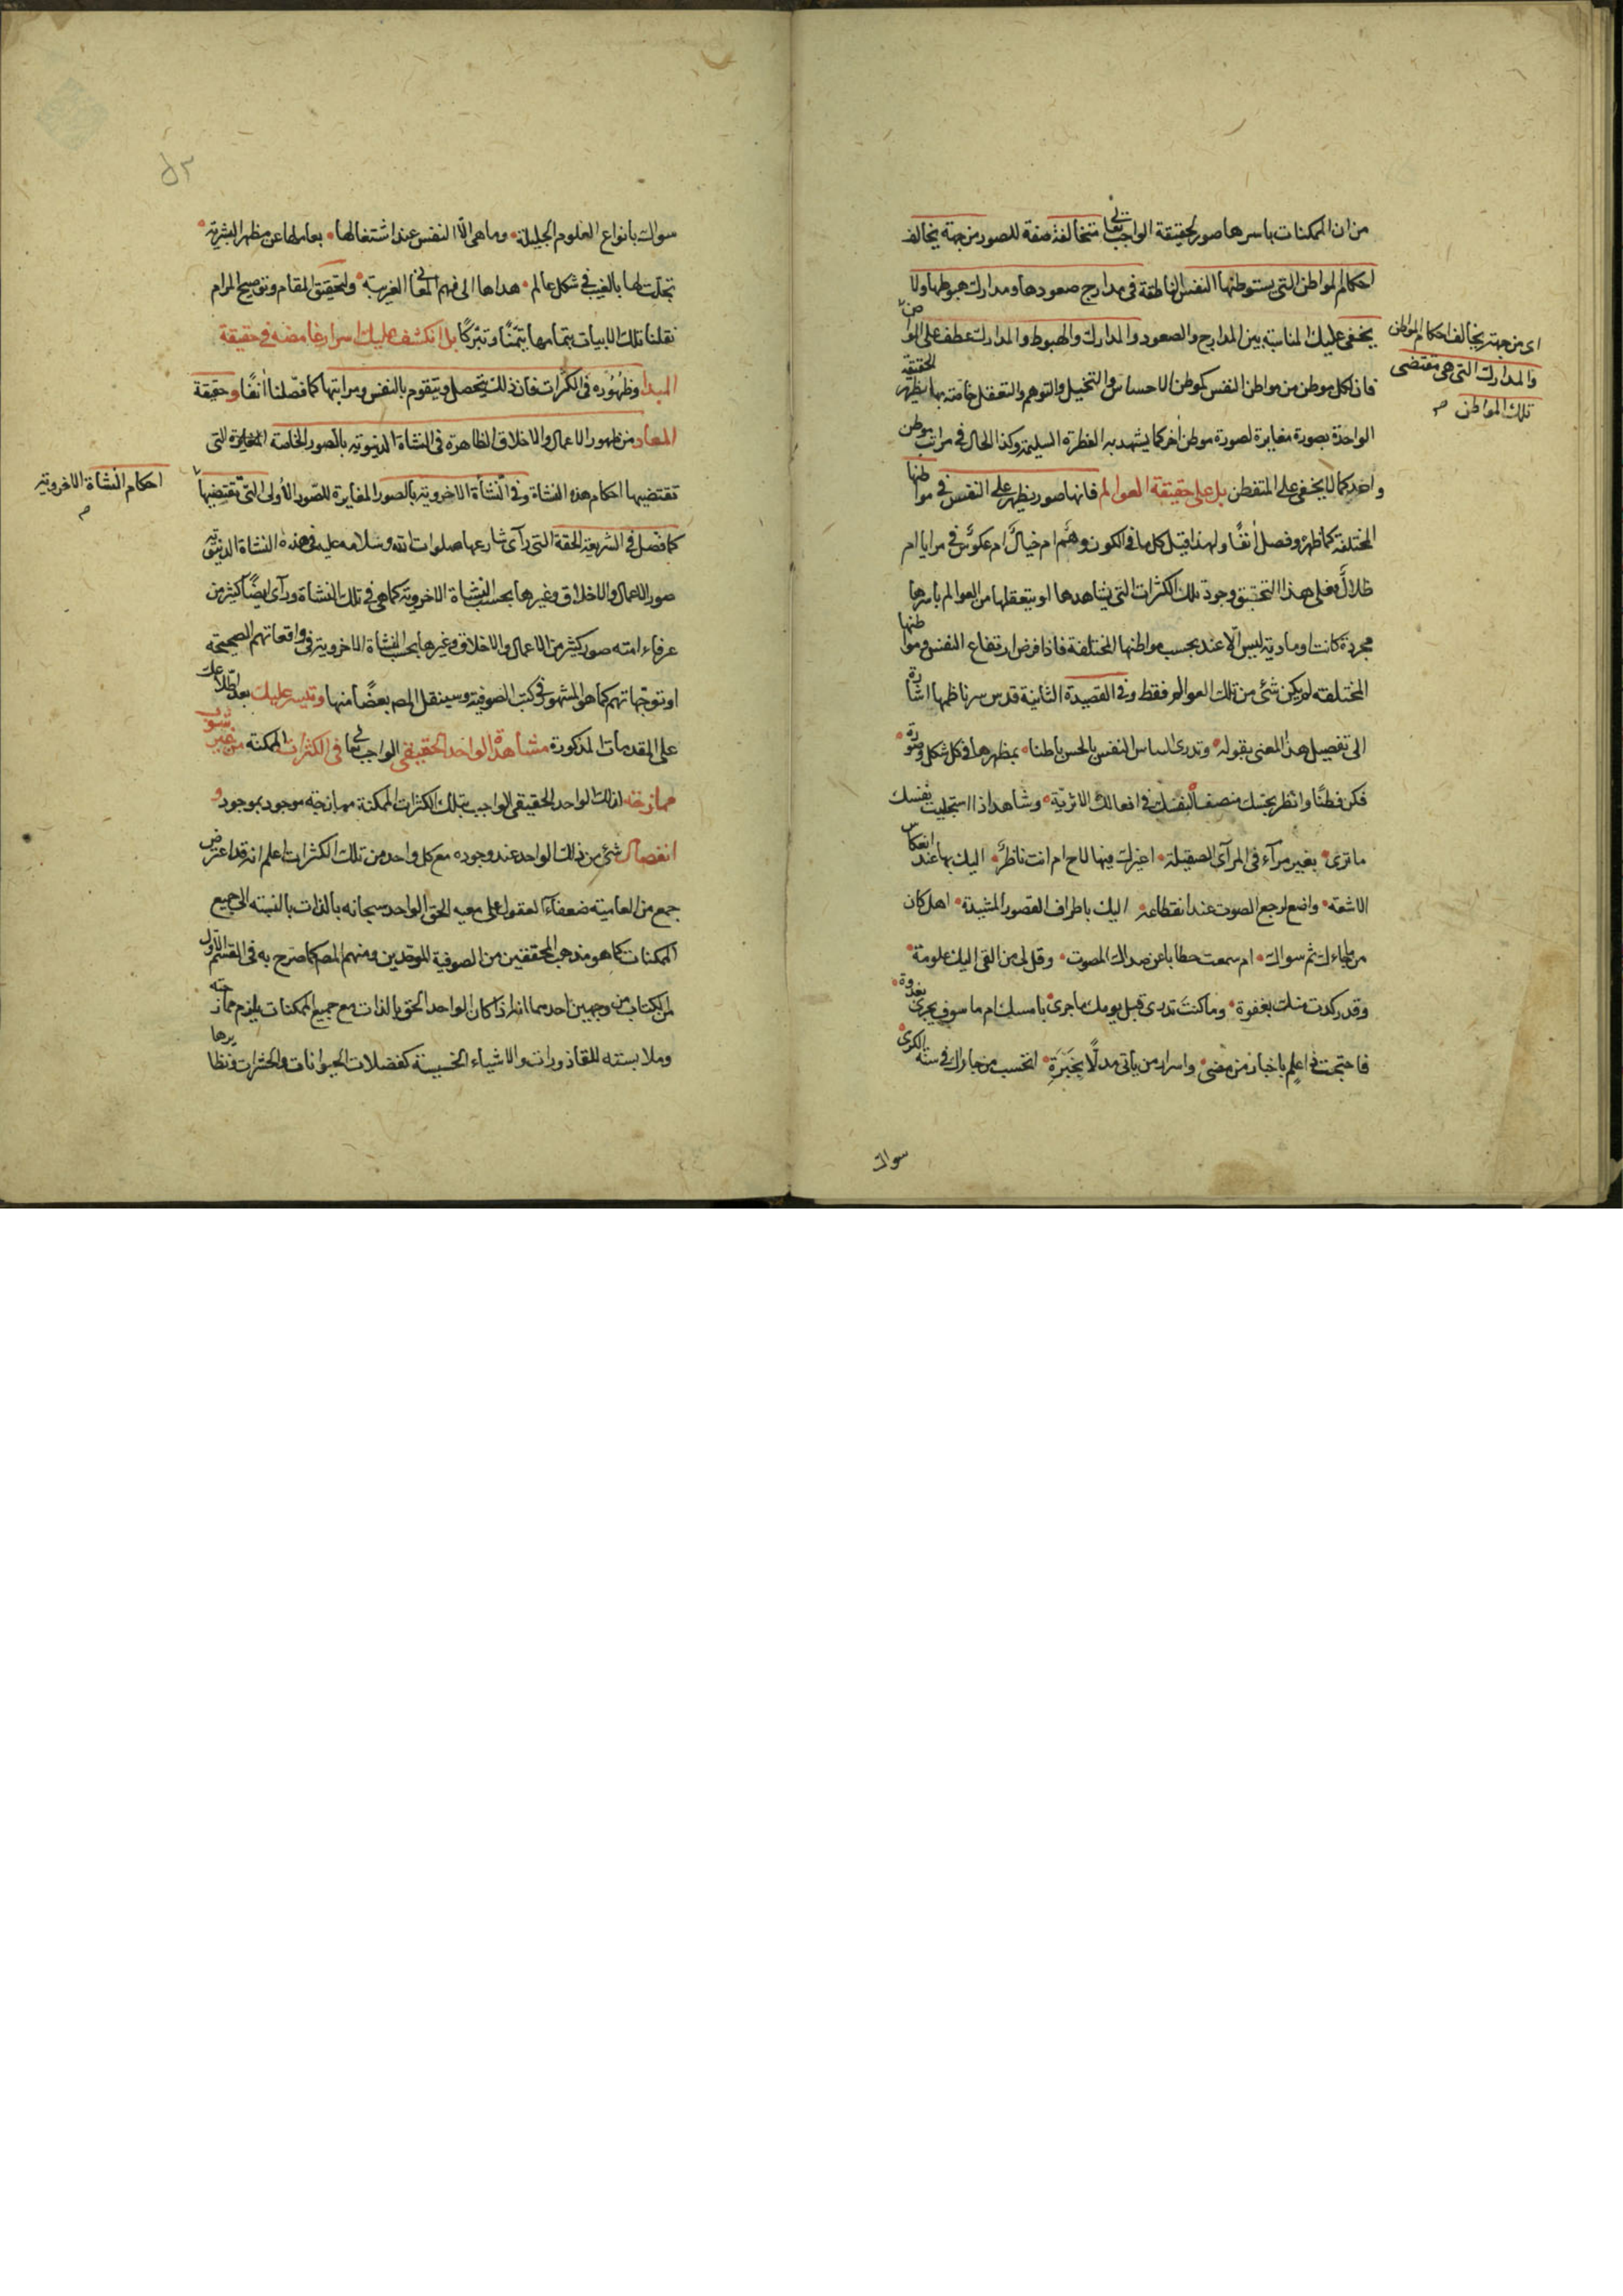 من ان الممكنات باسرها صور لحقيقة الواجب تعالى متخالفة صفة للصور من جهة يخالف
احكام المواطن التي يستوطنها النفس الناطقة في مدارج صعودها ومدارك هبوطها ولا
يخفى عليك المناسبة بين المدارج والصعود والمدارك والهبوط والمدارك عطف على المواطن
اى من جهة يخالف احكام المواطن
والمدارك التي هي مقتضى
تلك المواطن
فان لكل موطن من مواطن النفس كموطن الاحساس والتخيل والتوهم والتعقل خاصة بها يظهر الحقيقة
الواحدة بصورة مغايرة لصورة موطن اخر كما يشهد به الفطرة السليمة وكذا الحال في مراتب موطن
واحد كما لا يخفى على المتفطن بل على حقيقة العوالم فانها صور يظهر على النفس في مواطنها
المختلفة كما ظهر وفصل انفا ولهذا قيل كل ما في الكون وهم ام خيال ام عكوس في مرايا ام
ظلال فعلى هذا التحقيق وجود تلك الكثرات التي يشاهدها او يتعقلها من العوالم باسرها
مجردة كانت او مادية ليس الا عند بحسب مواطنها المختلفة فاذا فرض ارتفاع النفس ومواطنها
المختلفة لم يكن شئ من تلك العوالم فقط وفي القصيدة الثانية قدس سر ناظمها اشارة
الى تفصيل هذا المعنى بقوله وتدرى الباس النفس بالحس باطنا بمظهرها في كل شكل وصورة
فكن فطنا وانظر بحسك منصفا لنفسك في افعالك الاثرية وشاهد اذا استجليت نفسك
ما ترى بغير مرآء في المرآى الصقيلة اغيرك فيها لاح ام انت ناظر اليك بها عند انعكاس
الاشعة واضع لرجع الصوت عند انقطاعه اليك باطراف القصور المشيدة اهل كان
من ناجاك ثم سواك ام سمعت خطابا عن صداك المصوت وقل لى من القى اليك علومه
وقد ركدت منك بغفوة وما كنت تدرى قبل يومك ما جرى بامسك ام ما سوف يجرى بغدوة
فاصبحت ذا علم باخبار من مضى واسرار من يأتى مدلا بخبرة اتحسب من جاراك في سنة الكرى
سواك
سواك بانواع العلوم الجليلة وما هى الا النفس عند اشتغالها بعالمها عن مظهر البشرية
تجلت لها بالغيب في شكل عالم هداها الى فهم المعانى الغريبة ولتحقيق المقام وتوضيح المرام
نقلنا تلك الابيات بتمامها تيمنا وتبركا بل انكشف عليك اسرار غامضة في حقيقة
المبدأ وظهوره في الكثرات فان ذلك يتحصل ويتقوم بالنفس ومراتبها كما فصلنا انفا وحقيقة
المعاد من ظهور الاعمال والاخلاق الظاهرة في النشاة الدنيوية بالصور الخاصة المغايرة التي
تقتضيها احكام هذه النشاة وفي النشأة الاخروية بالصور المغايرة للصور الاولى التي تقتضيها
احكام النشأة الاخروية
كما فصل في الشريعة الحقة التي رأى شارعها صلوات الله وسلامه عليه في هذه النشاة الدنيوية
صور الاعمال والاخلاق وغيرها بحسب النشاة الاخروية كما هي في تلك النشاة ورأى ايضا كثير من
عرفاء امته صور كثير من الاعمال والاخلاق وغيرها بحسب النشأة الاخروية في واقعاتهم الصحيحة
او توجهاتهم كما هو المشهور في كتب الصوفية وسينقل المصـ بعضا منها وتيسر عليك بعد اطلاعك
على المقدمات المذكورة مشاهدة الواحد الحقيقي الواجب تعالى في الكثرات الممكنة من غير شوب
ممازجة لذلك الواحد الحقيقي الواجب بتلك الكثرات الممكنة ممازجة موجود بموجود و
انفصال شئ من ذلك الواحد عند وجوده مع كل واحد من تلك الكثرات اعلم انه قد اعترض
جمع من العامية ضعفاء العقول على معية الحق الواحد سبحانه بالذات بالنسبة الى جميع
الممكنات كما هو مذهب المحققين من الصوفية الموحدين ومنهم المصـ كما صرح به في القسم الاول
من الكتاب من وجهين احدهما انه اذا كان الواحد الحق بالذات مع جميع الممكنات يلزم ممازجته
وملابسته للقاذورات والاشياء الخسيسة كفضلات الحيوانات والحشرات ونظايرها